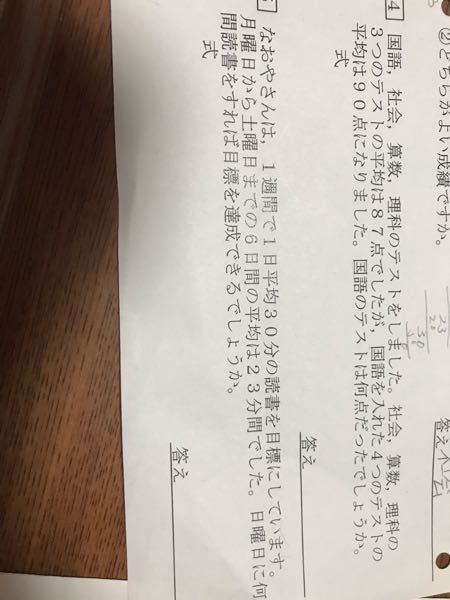 ②どちらがよい成績ですか。
答え
4 国語，社会，算数，理科のテストをしました。社会，算数，理科の
３つのテストの平均は８７点でしたが，国語を入れた４つのテストの
平均は９０点になりました。国語のテストは何点だったでしょうか。
式
答え
なおやさんは，１週間で１日平均３０分の読書を目標にしています。
月曜日から土曜日までの６日間の平均は２３分間でした。日曜日に何
間読書をすれば目標を達成できるでしょうか。
式
答え